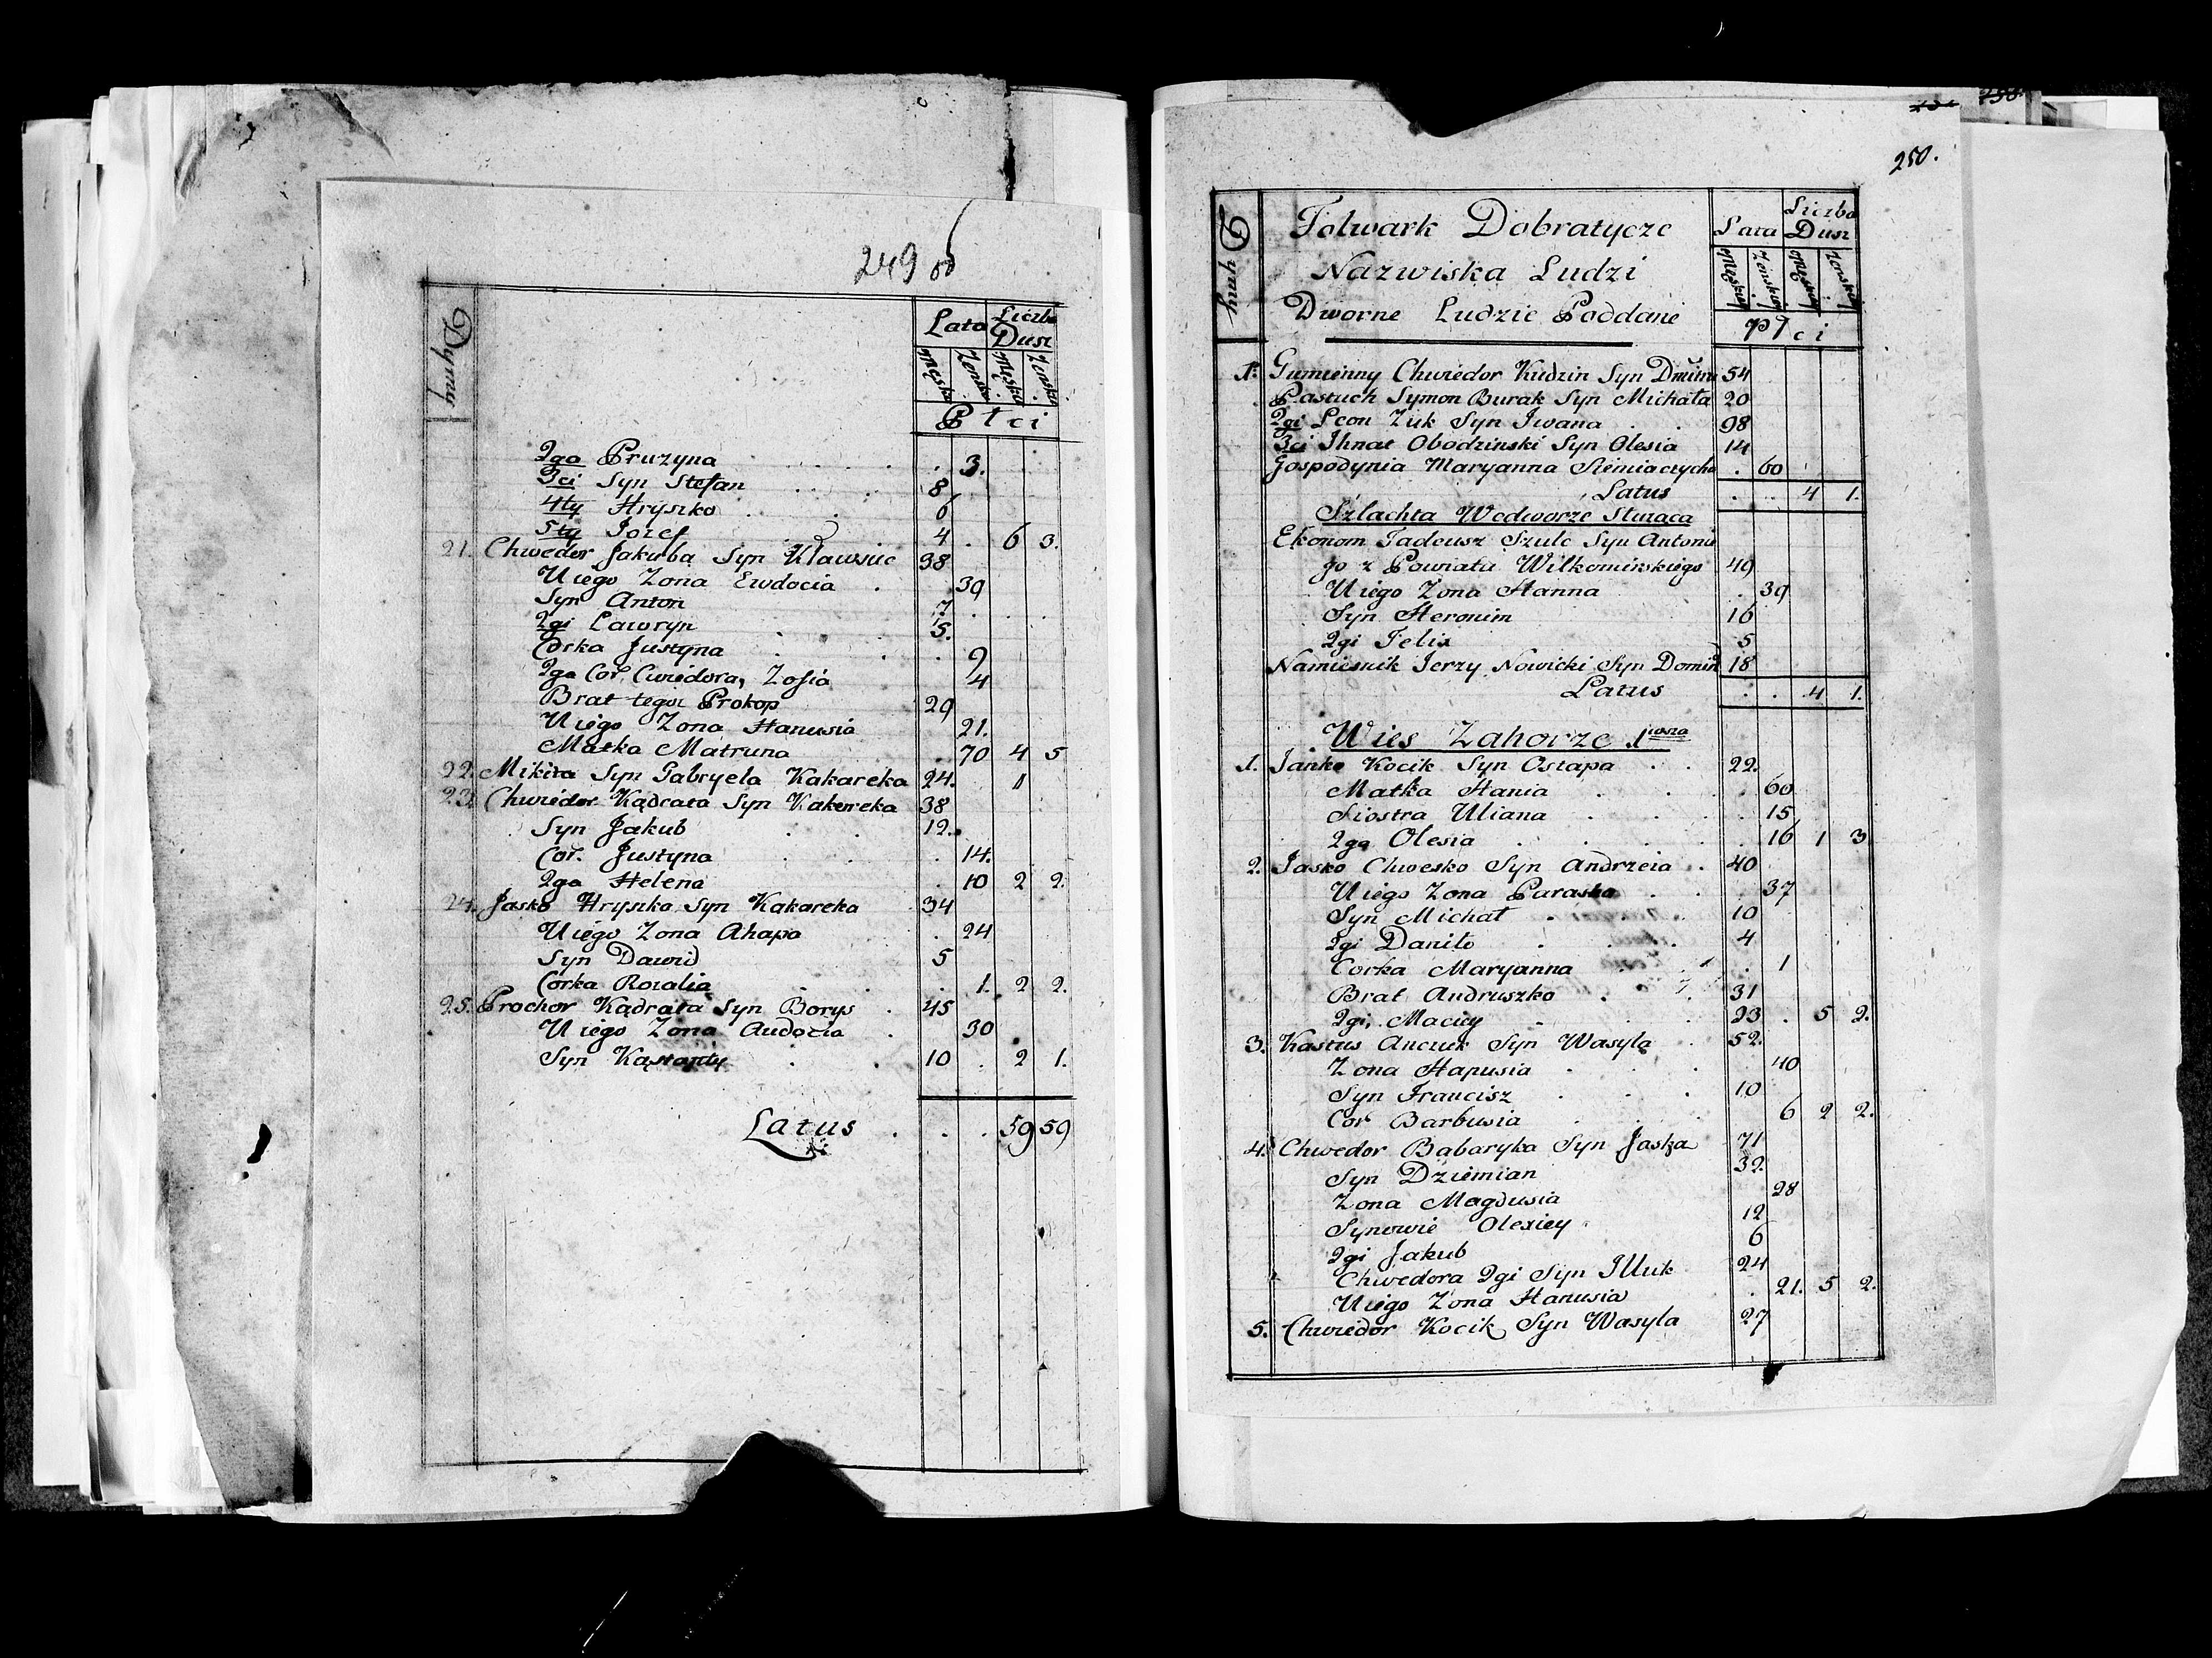 249 об
Dymy
Lata Liczba Dusz
Męska Zeńska Męska Zeńska
Płci
2ga Pruzyna . 3.
3ci Syn Stefan 8
4ty Hryszko 6
5ty Jozef 4 . 6 3.
21. Chwedor Jakuba Syn Kławsiuc 38
U iego Zona Ewdocia . 39
Syn Anton 7
2gi Lawryn 5.
Córka Justyna . 9
2ga Cor. Cwiedora, Zofia 4
Brat tegoż Prokop 29
U iego Zona Hanusia 21.
Matka Matruna . 70 4 5
22. Mikita Syn Gabryela Kakareka 24. 1
23. Chwiedor Kądrata Syn Kakareka 38
Syn Jakub 12.
Cor. Justyna . 14.
2ga Helena . 10 2 2.
24. Jasko Hryszka Syn Kakareka 34
U iego Zona Ahapa . 24
Syn Dawid 5
Corka Rozalia . 1. 2 2.
25. Prochor Kądrata Syn Borys 45
U iego Zona Audocia . 30
Syn Kąstanty 10 . 2 1.
Latus . . . 59 59
250.
Dymy
Folwark Dobratycze
Lata Liczba Dusz
Nazwiska Ludzi
Męskiey Zeńskiey Męskiey Zenskiey
Dworne Ludzie Poddane
Płci
1. Gumienny Chwiedor Kudzin Syn Dmitra 54
Pastuch Symon Burak Syn Michała 20
2gi Leon Zuk Syn Iwana 98
3ci Ihnat Obodzinski Syn Olesia 14
Gospodynia Maryanna Siemiaczycha . 60
Latus . . 4 1.
Szlachta Wedworze Sturąca
Ekonom Tadeusz Szulc Syn Antonie
go z Powiatu Wilkomirskiego 49
U iego Zona Hanna . 39
Syn Heronim 16
2gi Felix 5
Namiesnik Jerzy Nowicki Syn Domin 18
Latus . . 4 1.
Wies Zahorze 1wsza
1. Janko Kocik Syn Ostapa 22.
Matka Hania 60
Siostra Uliana . 15
2ga Olesia . 16 1 3
2. Jasko Chwesko Syn Andrzeia 40
U iego Zona Paraska . 37
Syn Michał 10
2gi Daniło 4
Corka Maryanna . 1
Brat Andruszko 31
2gi Maciey 23 . 5 2.
3. Kastus Anczuk Syn Wasyla 52.
Zona Hapusia . 40
Syn Francisz 10
Cor Barbusia 6 2 2.
4. Chwedor Babaryka Syn Jaska 71
Syn Dziemian 32.
Zona Magdusia 28
Synowie Olexiey 12
2gi Jakub 6
Chwedora 2gi Syn Illuk 24
U iego Zona Hanusia . 21. 5 2.
5. Chwiedor Kocik Syn Wasyla 27